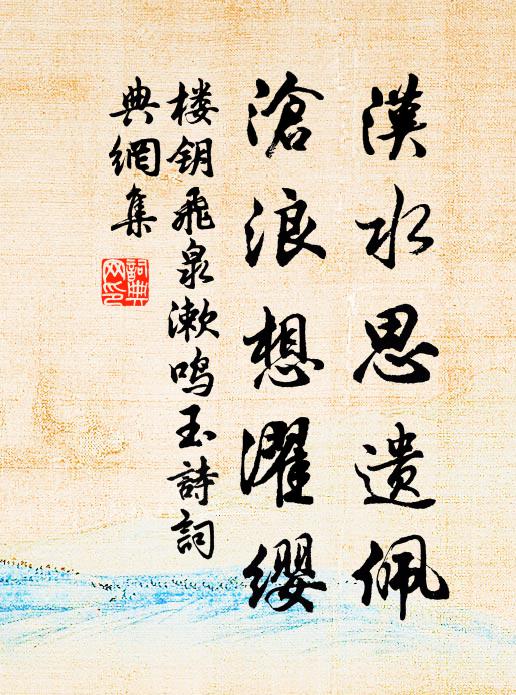 漢水思遗佩
滄浪想濯缨
楼钥飛泉漱鸣玉詩詞
典網集
詞典
网印